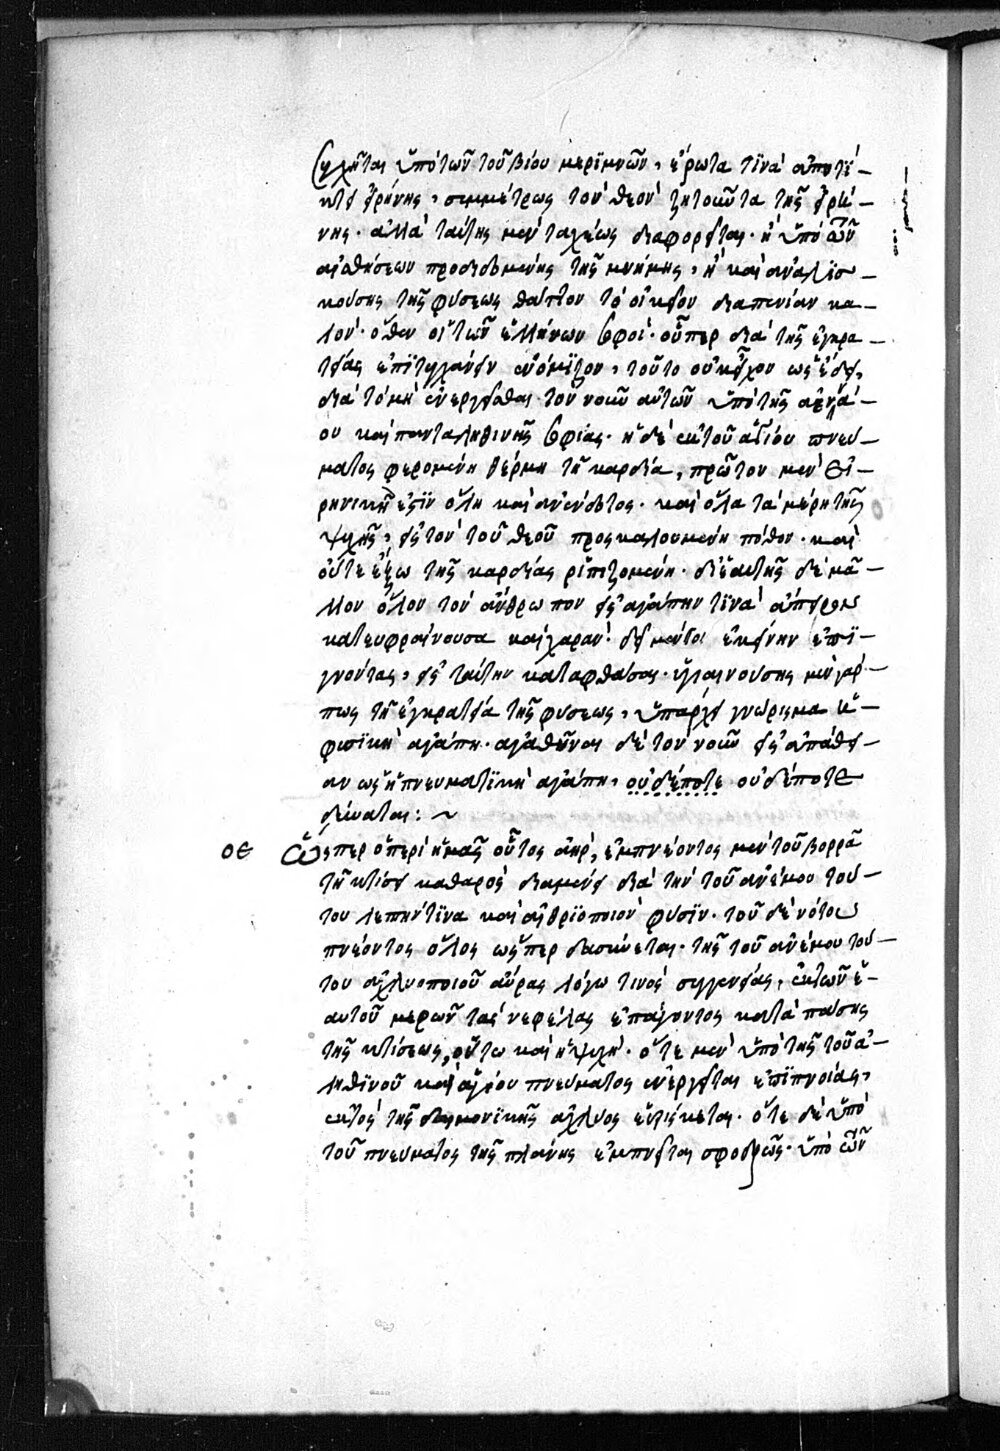 οχλῆται ὑπὸ τῶν τοῦ βίου μεριμνῶν, ἔρωτα τινὰ ἀποτί-
κτει εἰρήνης, συμμέτρως τὸν θεὸν ζητοῦντα τῆς εἰρή-
νης. ἀλλὰ ταύτης μὲν ταχέως διαφορεῖται. ἢ ὑπὸ τῶν
αἰσθήσεων προδιδομένης τῆς μνήμης, ἢ καὶ ἀναλισ-
κούσης τῆς φύσεως θᾶττον τὸ οἰκεῖον διὰ πενίαν κα-
λόν. ὅθεν οἱ τῶν ἑλλήνων σοφοὶ. οὗπερ διὰ τῆς ἐγκρα-
τείας ἐπιτυγχάνειν ἐνόμιζον, τοῦτο οὐκ εἶχον ὡς ἔδει,
διὰ τὸ μὴ ἐνεργεῖσθαι τὸν νοῦν αὐτῶν ὑπὸ τῆς ἀεννά-
ου καὶ πανταληθινῆς σοφίας. ἡ δὲ ἐκ τοῦ ἁγίου πνεύ-
ματος φερομένη θέρμη τῇ καρδία, πρῶτον μὲν εἰ-
ρηνική ἐστιν ὅλη καὶ ἀνένδοτος. καὶ ὅλα τὰ μέρη τῆς
ψυχῆς, εἰς τὸν τοῦ θεοῦ προσκαλουμένη πόθον. καὶ
οὔτε ἔξω τῆς καρδίας ριπιζομένη. δι' ἑαυτῆς δὲ μᾶ-
λλον ὅλον τὸν ἄνθρωπον εἰς ἀγάπην τινὰ ἄπειρον
κατευφραίνουσα καὶ χαράν. δεῖ μέντοι ἐκείνην ἐπι-
γνόντας, εἰς ταύτην καταφθάσαι. ὑγιαινούσης μὲν γάρ
πως τῇ ἐγκρατεία τῆς φύσεως, ὑπάρχει γνώρισμα ἡ
φυσικὴ ἀγάπη. ἀγαθῦναι δὲ τὸν νοῦν εἰς ἀπάθει-
αν ὡς ἡ πνευματικὴ ἀγάπη, οὐδέποτε οὐδέποτε
δύναται: ~
οε Ὥσπερ ὁ περὶ ἡμᾶς οὗτος ἀὴρ, ἐμπνέοντος μὲν τοῦ βορρᾶ
τῇ κτίσει καθαρὸς διαμένει διὰ τὴν τοῦ ἀνέμου τού-
του λεπτήν τινα καὶ αἰθριοποιὸν φύσιν. τοῦ δὲ νότου
πνέοντος ὅλος ὥσπερ δασύνεται. τῆς τοῦ ἀνέμου τού-
του ἀχλυοποιοῦ αὔρας λόγω τινὸς συγγενείας, ἐκ τῶν ἑ-
αυτοῦ μερῶν τὰς νεφέλας ἐπάγοντος κατὰ πάσης
τῆς κτίσεως, οὕτω καὶ ἡ ψυχὴ. ὅτε μὲν ὑπὸ τῆς τοῦ ἀ-
ληθινοῦ καὶ ἁγίου πνεύματος ἐνεργεῖται ἐπιπνοίας,
ἐκτὸς τῆς δαιμονικῆς ἀχλύος εὑρίσκεται. ὅτε δὲ ὑπὸ
τοῦ πνεύματος τῆς πλάνης ἐμπνεῖται σφοδρῶς. ὑπὸ τῶν